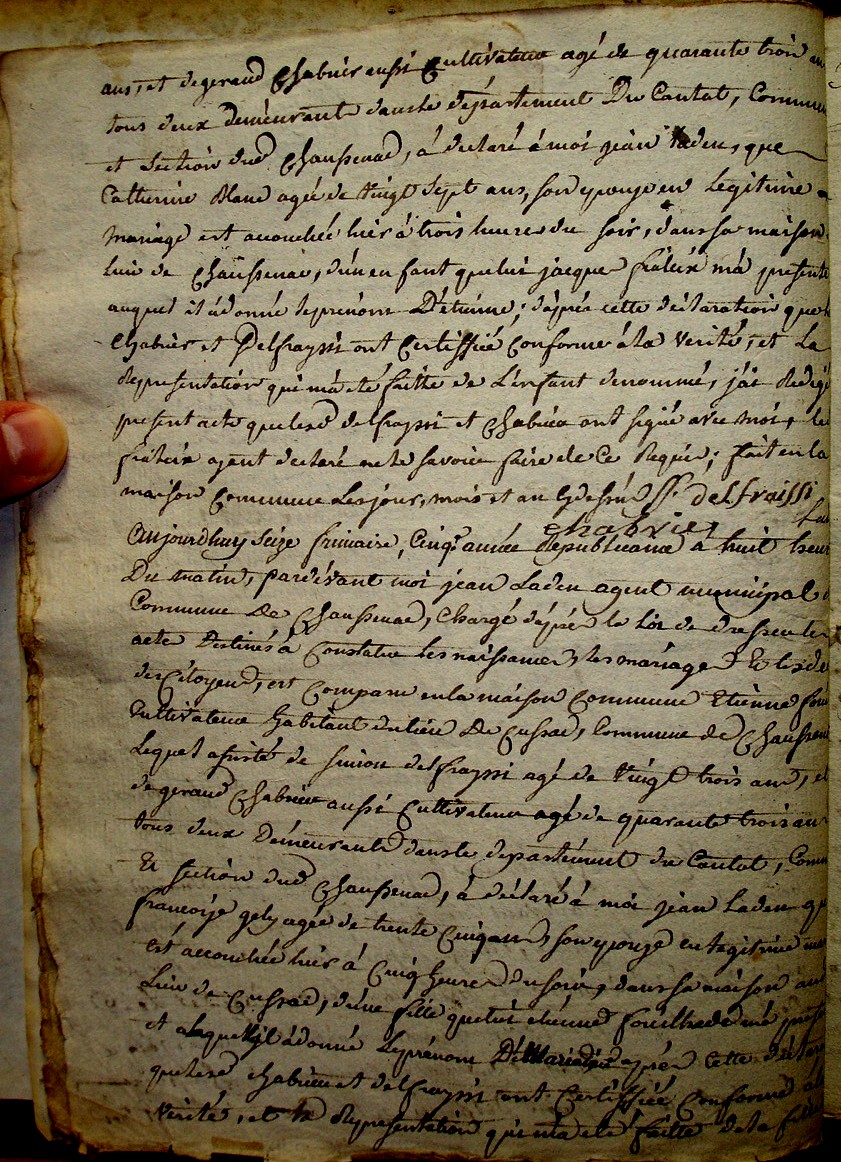 ans, et de geraud Chabrier aussi Cultivateur agé de quarante trois
tous deux demeurants dans le départément Du Cantal, Commune
et Section dud Chaussenac, à déclaré à moi jean Laden, que
Catherine Blanc agée de vingt Sept ans, son epouse en Legitime
mariage est accouchée hier à trois heures du soir, dans sa maison
Lieu de Chaussenac, d'un enfant que lui jacques fialeix m'a presenté
auquel il à donné le prénom D'étienne; d'après cette déclaration que
Chabrier et Delfraissi ont Certiffiée Conforme à la verité, et La
Représentation qui m'a été faitte de L'enfant denommé, j'ai Redigé
présent acte que lesd delfraissi et Chabrier ont signé avec moi, led
fialeix ayent déclaré ne le savoir faire de Ce Requis; fait en la
maison Commune Les jour, mois et an que dessus S. delfraissi
chabrier
Aujourdhuy Seize frimaire, Cinq.e année Républicaine à huit heures
Du matin, pardevant moi jean Laden agent municipal
Commune De Chaussenac, Chargé d'après la Loi de dresser les
acte Destinés à Constater les naissances, les mariages Et les dé
des Citoyens, est Comparu en la maison Commune Etienne fou
Cultivateur habitant du lieu De Cussac, Commune de Chaussenac
Lequel assisté de simon delfraissi agé de vingt trois ans, et
de geraud Chabrier aussi Cultivateur agé de quarante trois ans
tous deux Demeurants dans le départément du Cantal, Comm
Et section dud Chaussenac, à déclaré à moi jean Laden qu
francoise gely agée de trente Cinq ans, son epouse en legitime ma
est accouchée hier à Cinq heures du soir, dans sa maison au
Lieu de Cussac, d'une fille que lui etienne fouilhade m'a présen
et a laquelle il à donné Le prénom De Marie d'après Cette déclara
que lesd chabrier et delfraissi ont Certiffiée Conforme à la
verité, et la Représentation qui m'a été faitte de la fille